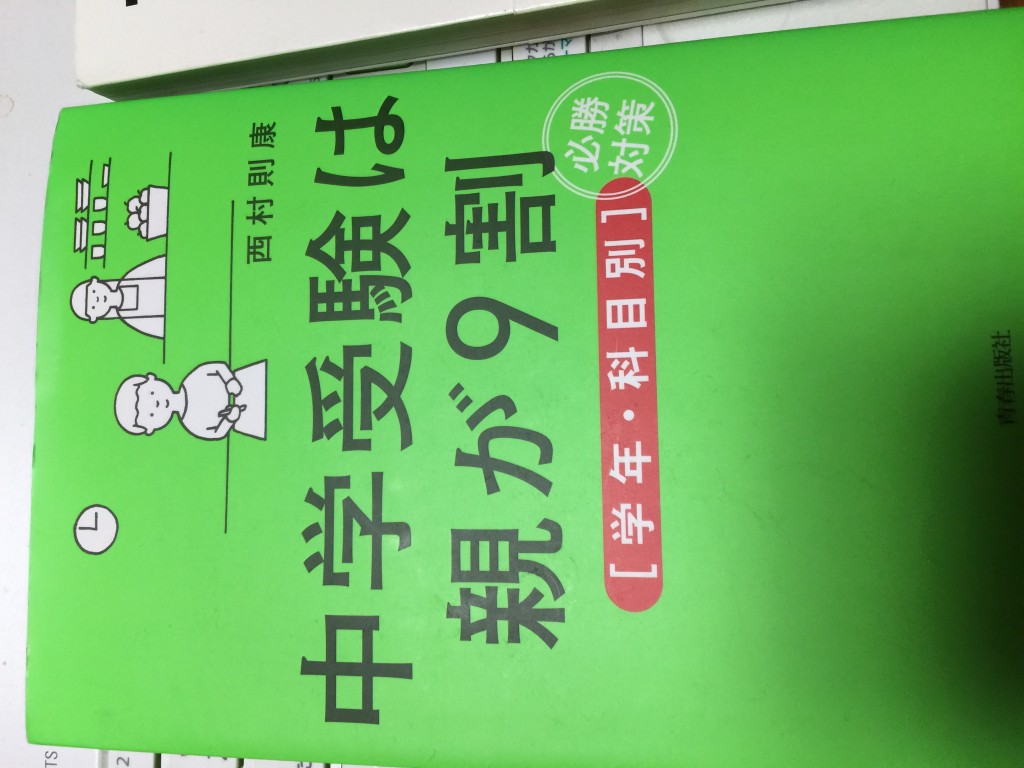 西村則康
中学受験は
親が9割
[学年・科目別]
必勝
対策
青春出版社